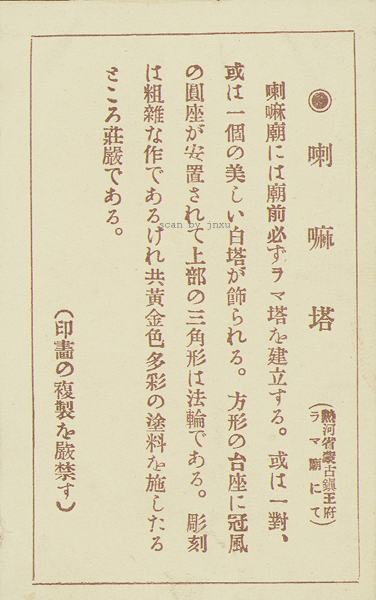 ◉喇嘛塔
(熱河省蒙古鎭王府
ラマ廟にて)
喇嘛廟には廟前必ずラマ塔を建立する。或は一對、
或は一個の美しい白塔が飾られる。方形の台座に冠風
の圓座が安置されて上部の三角形は法輪である。彫刻
は粗雜な作であるけれ共黃金色多彩の塗料を施したる
ところ莊嚴である。
(印畵の複製を嚴禁す)
scan by jnxu